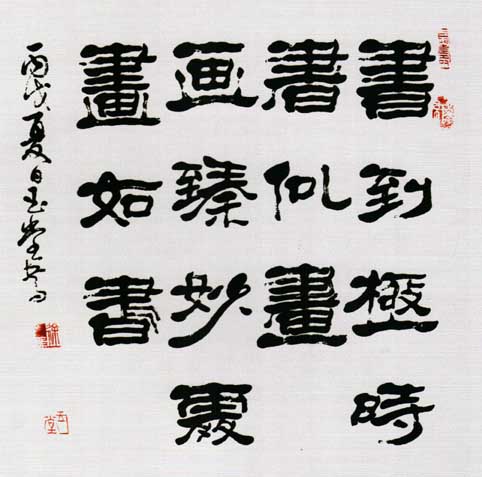 書到極時
書似畫
画臻妙處
畫如書
丙戌夏日玉堂